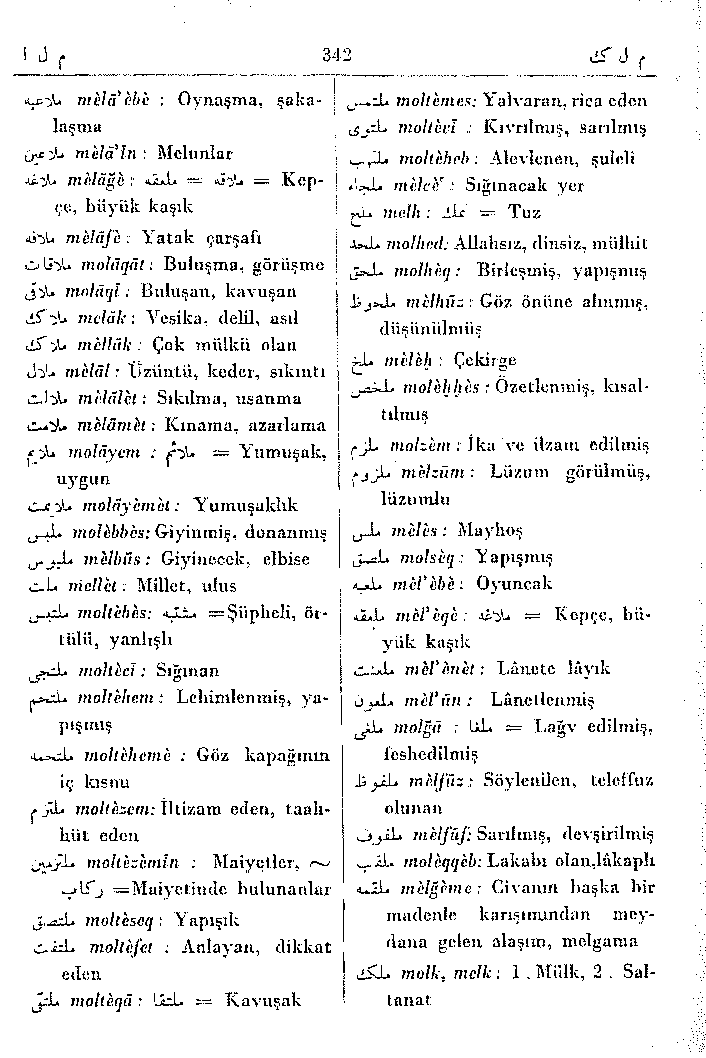 م ل ا 342 م ل ك
ملاعبه mèlā'èbè : Oynaşma, şaka-
laşma
ملاعين mèlā'în : Melunlar
ملاغه mèlāğè : ملعقه = ملاقه = Kep-
çe, büyük kaşık
ملافه mèlāfè : Yatak çarşafı
ملاقات molāqāt : Buluşma, görüşme
ملاقی molāqî : Buluşan, kavuşan
ملاك melāk : Vesika, delil, asıl
ملاك mèllāk : Çok mülkü olan
ملال mèlāl : Üzüntü, keder, sıkıntı
ملالت mèlālèt : Sıkılma, usanma
ملامت mèlāmèt : Kınama, azarlama
ملايم molāyem : ملائم = Yumuşak,
uygun
ملايمت molāyèmèt : Yumuşaklık
ملبس molèbbès: Giyinmiş, donanmış
ملبوس mèlbūs : Giyinecek, elbise
ملت mellèt : Millet, ulus
ملتبس moltèbès: مشتبه =Şüpheli, ör-
tülü, yanlışlı
ملتجی moltècî : Sığınan
ملتحم moltèhem : Lehimlenmiş, ya-
pışmış
ملتحمه moltèhemè : Göz kapağının
iç kısmı
ملتزم moltèzem: İltizam eden, taah-
hüt eden
ملتزمين moltèzèmîn : Maiyetler, ~
ركاب =Maiyetinde bulunanlar
ملتصق moltèseq : Yapışık
ملتفت moltèfet : Anlayan, dikkat
eden
ملتقی moltèqā : ملتقا = Kavuşak
ملتمس moltèmes: Yalvaran, rica eden
ملتوی moltèvî : Kıvrılmış, sarılmış
ملتهب moltèheb : Alevlenen, şuleli
ملجاء mèlcè' : Sığınacak yer
ملح melh : نمك = Tuz
ملحد molhed: Allahsız, dinsiz, mülhit
ملحق molhèq : Birleşmiş, yapışmış
ملحوظ mèlhūz : Göz önüne alınmış,
düşünülmüş
ملخ mèlèh : Çekirge
ملخص molèhhès : Özetlenmiş, kısal-
tılmış
ملزم molzèm : İka ve ilzam edilmiş
ملزوم mèlzūm : Lüzum görülmüş,
lüzumlu
ملس mèlès : Mayhoş
ملصق molsèq : Yapışmış
ملعبه mèl'èbè : Oyuncak
ملعقه mèl'èqè : ملاغه = Kepçe, bü-
yük kaşık
ملعنت mèl'ènèt : Lânete lâyık
ملعون mèl'ūn : Lânetlenmiş
ملغی molğā : ملغا = Lağv edilmiş,
feshedilmiş
ملفوظ mèlfūz : Söylenilen, teleffuz
olunan
ملفوف mèlfūf: Sarılmış, devşirilmiş
ملقب molèqqèb: Lakabı olan,lâkaplı
ملقمه mèlgème : Civanın başka bir
madenle karışımından mey-
dana gelen alaşım, melgama
ملك molk, melk : 1 . Mülk, 2 . Sal-
tanat